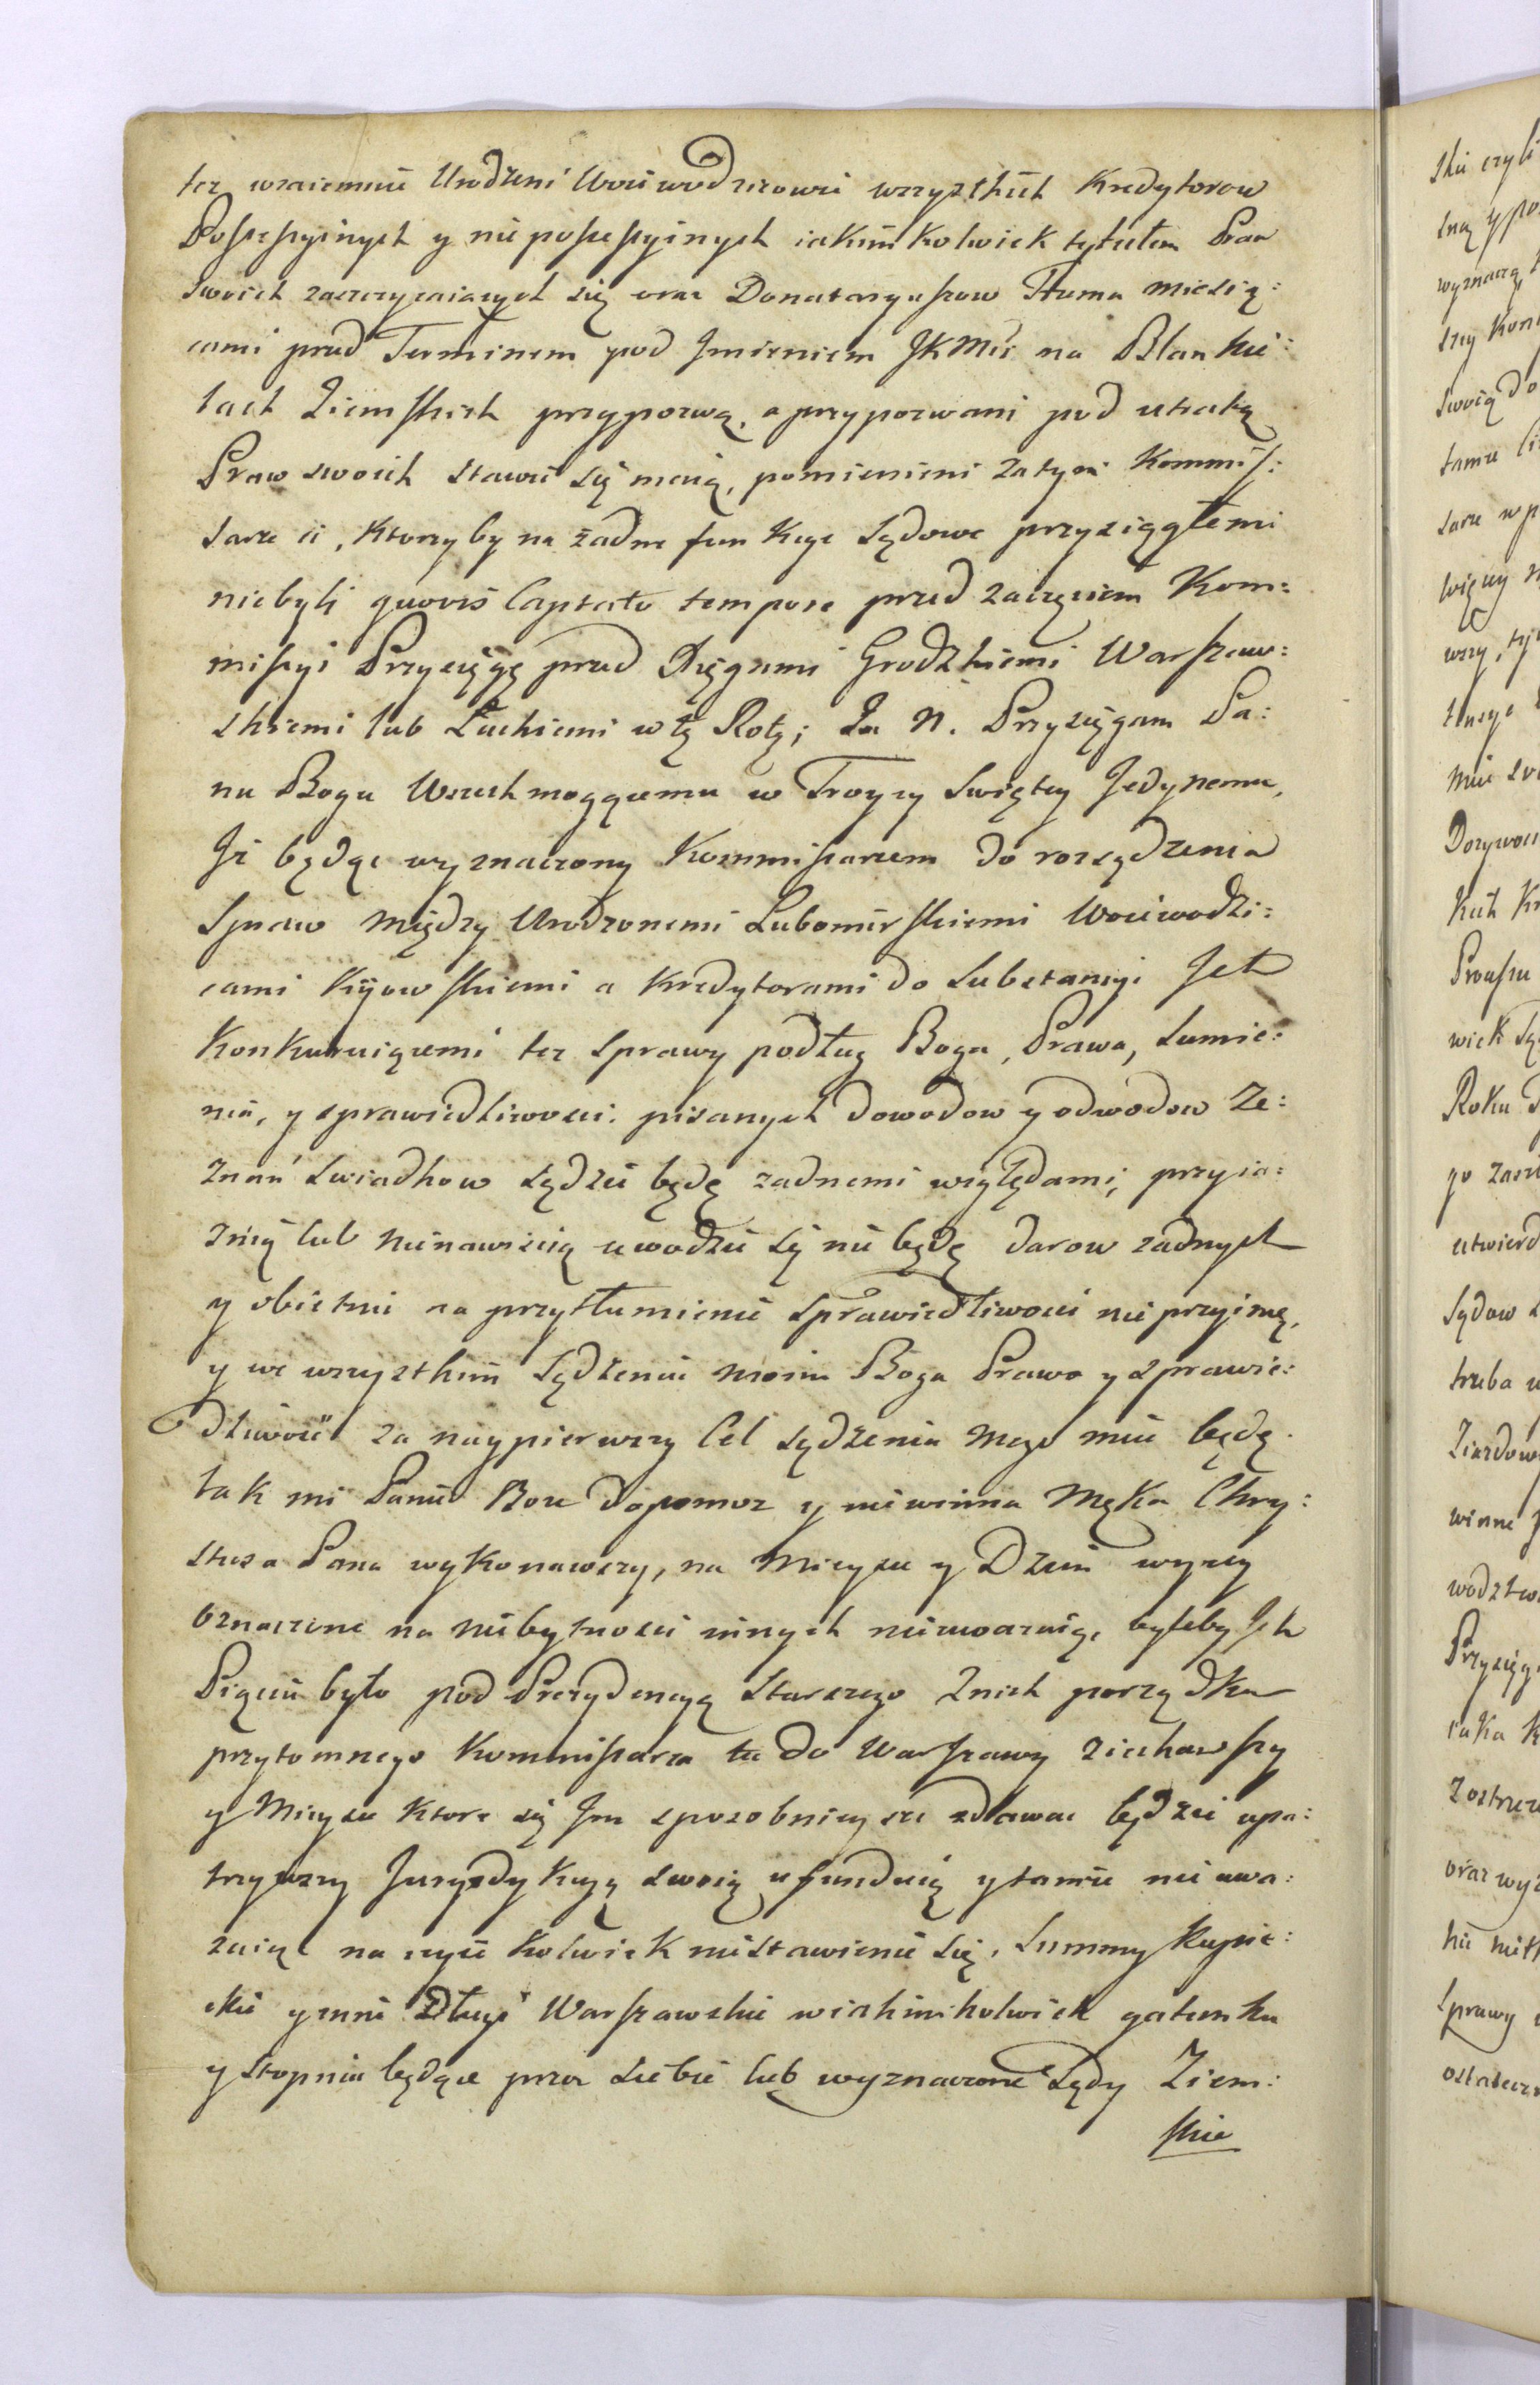 tez wzaiemnie Urodzeni Woiewodzicowie wszystkich Kredytorow
Possessyinych y nie possessyinych iakimkolwiek tytułem Praw
swoich zaszczycaiących się oraz Donataryuszow Trzema miesią:
cami przed Terminem pod Jmieniem JKMci na Blankie:
tach Ziemskich przypozwą, a przypozwani pod utratą
Praw swoich stawić się maią, pomienieni zatym Kommis:
sarze ci, Ktorzyby na żadne funkcye Sądowe przysięgłemi
niebyli quovis Captato tempore przed zaczęciem Kom:
missyi Przysięgę przed Xięgami Grodzkiemi Warszaw:
skiemi lub Łuckiemi w tę Rotę; Ja N. Przysięgam Pa:
nu Bogu Wszechmogącemu w Troycy Swiętey Jedynemu,
Jż będąc wyznaczony Kommissarzem do rozsądzenia
Spraw między Urodzonemi Lubomirskiemi Woiewodzi:
cami Kijowskiemi a Kredytorami do Substancyi Jch
Konkuruiącemi też sprawy podług Boga, Prawa, Sumie:
nia, y sprawiedliwosci, pisanych dowodow y odwodow Ze:
znań Swiadkow sądzić będę żadnemi względami, przyia:
znią lub nienawiscią uwodzić się nie będę darow żadnych
y obietnic na przytłumienie sprawiedliwosci nie przyimę,
y we wszystkim Sądzeniu moim Boga Prawo y sprawie:
dliwość za naypierwszy Cel sądzenia mego mieć będę.
tak mi Panie Boze dopomoz y niewinna Męka Chry:
stusa Pana wykonawszy, na Mieysce y Dzień wyżey
oznaczone na niebytnosci innych nieuwazaiąc byleby Jch
Pięciu było pod Prezydencyą Starszego Znich porządku
przytomnego Kommissarza tu do Warszawy ziechawszy
y Mieysce Ktore się Jm sposobnieysze zdawac będzie upa:
trzywszy Juryzdykcyą swoią ufunduią y tamże nie uwa:
zaiąc na czyie kolwiek niestawienie się, Summy Kupie:
ckie y inne Długi Warszawskie w iakimkolwiek gatunku
y Stopniu będące przez siebie lub wyznaczone Sądy Ziem:
skie